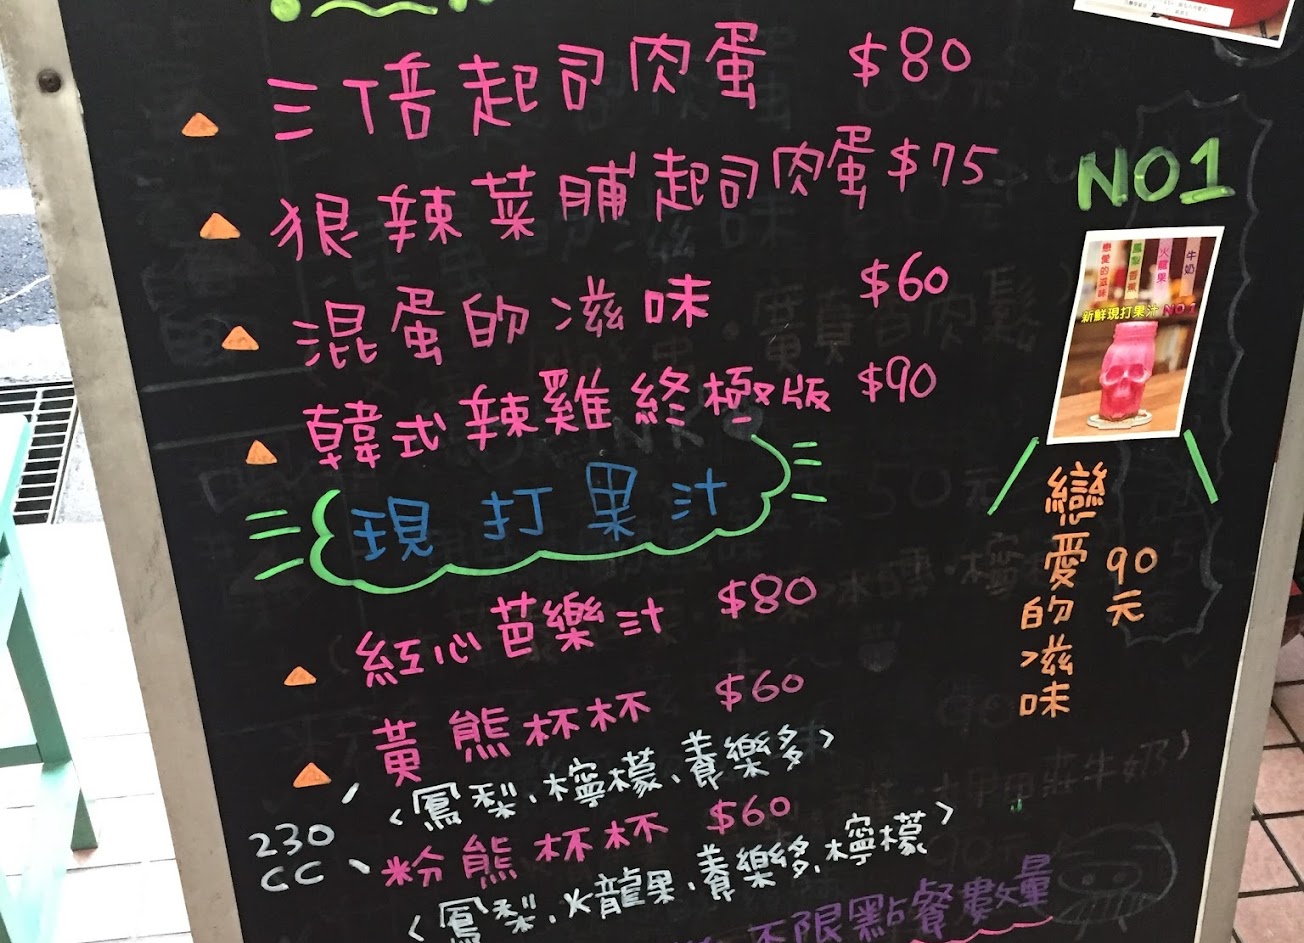 三倍起司肉蛋 $80
狠辣菜脯起司肉蛋 $75
混蛋的滋味 $60
韓式辣雞終極版 $90
現打果汁
紅心芭樂汁 $80
黃熊杯杯 $60
〈鳳梨、檸檬、養樂多〉
230
CC
粉熊杯杯 $60
〈鳳梨、火龍果、養樂多、檸檬〉
不限點餐數量
NO1
戀愛的滋味
火龍果
牛奶
新鮮現打果汁 NO1
戀愛的滋味
90
元